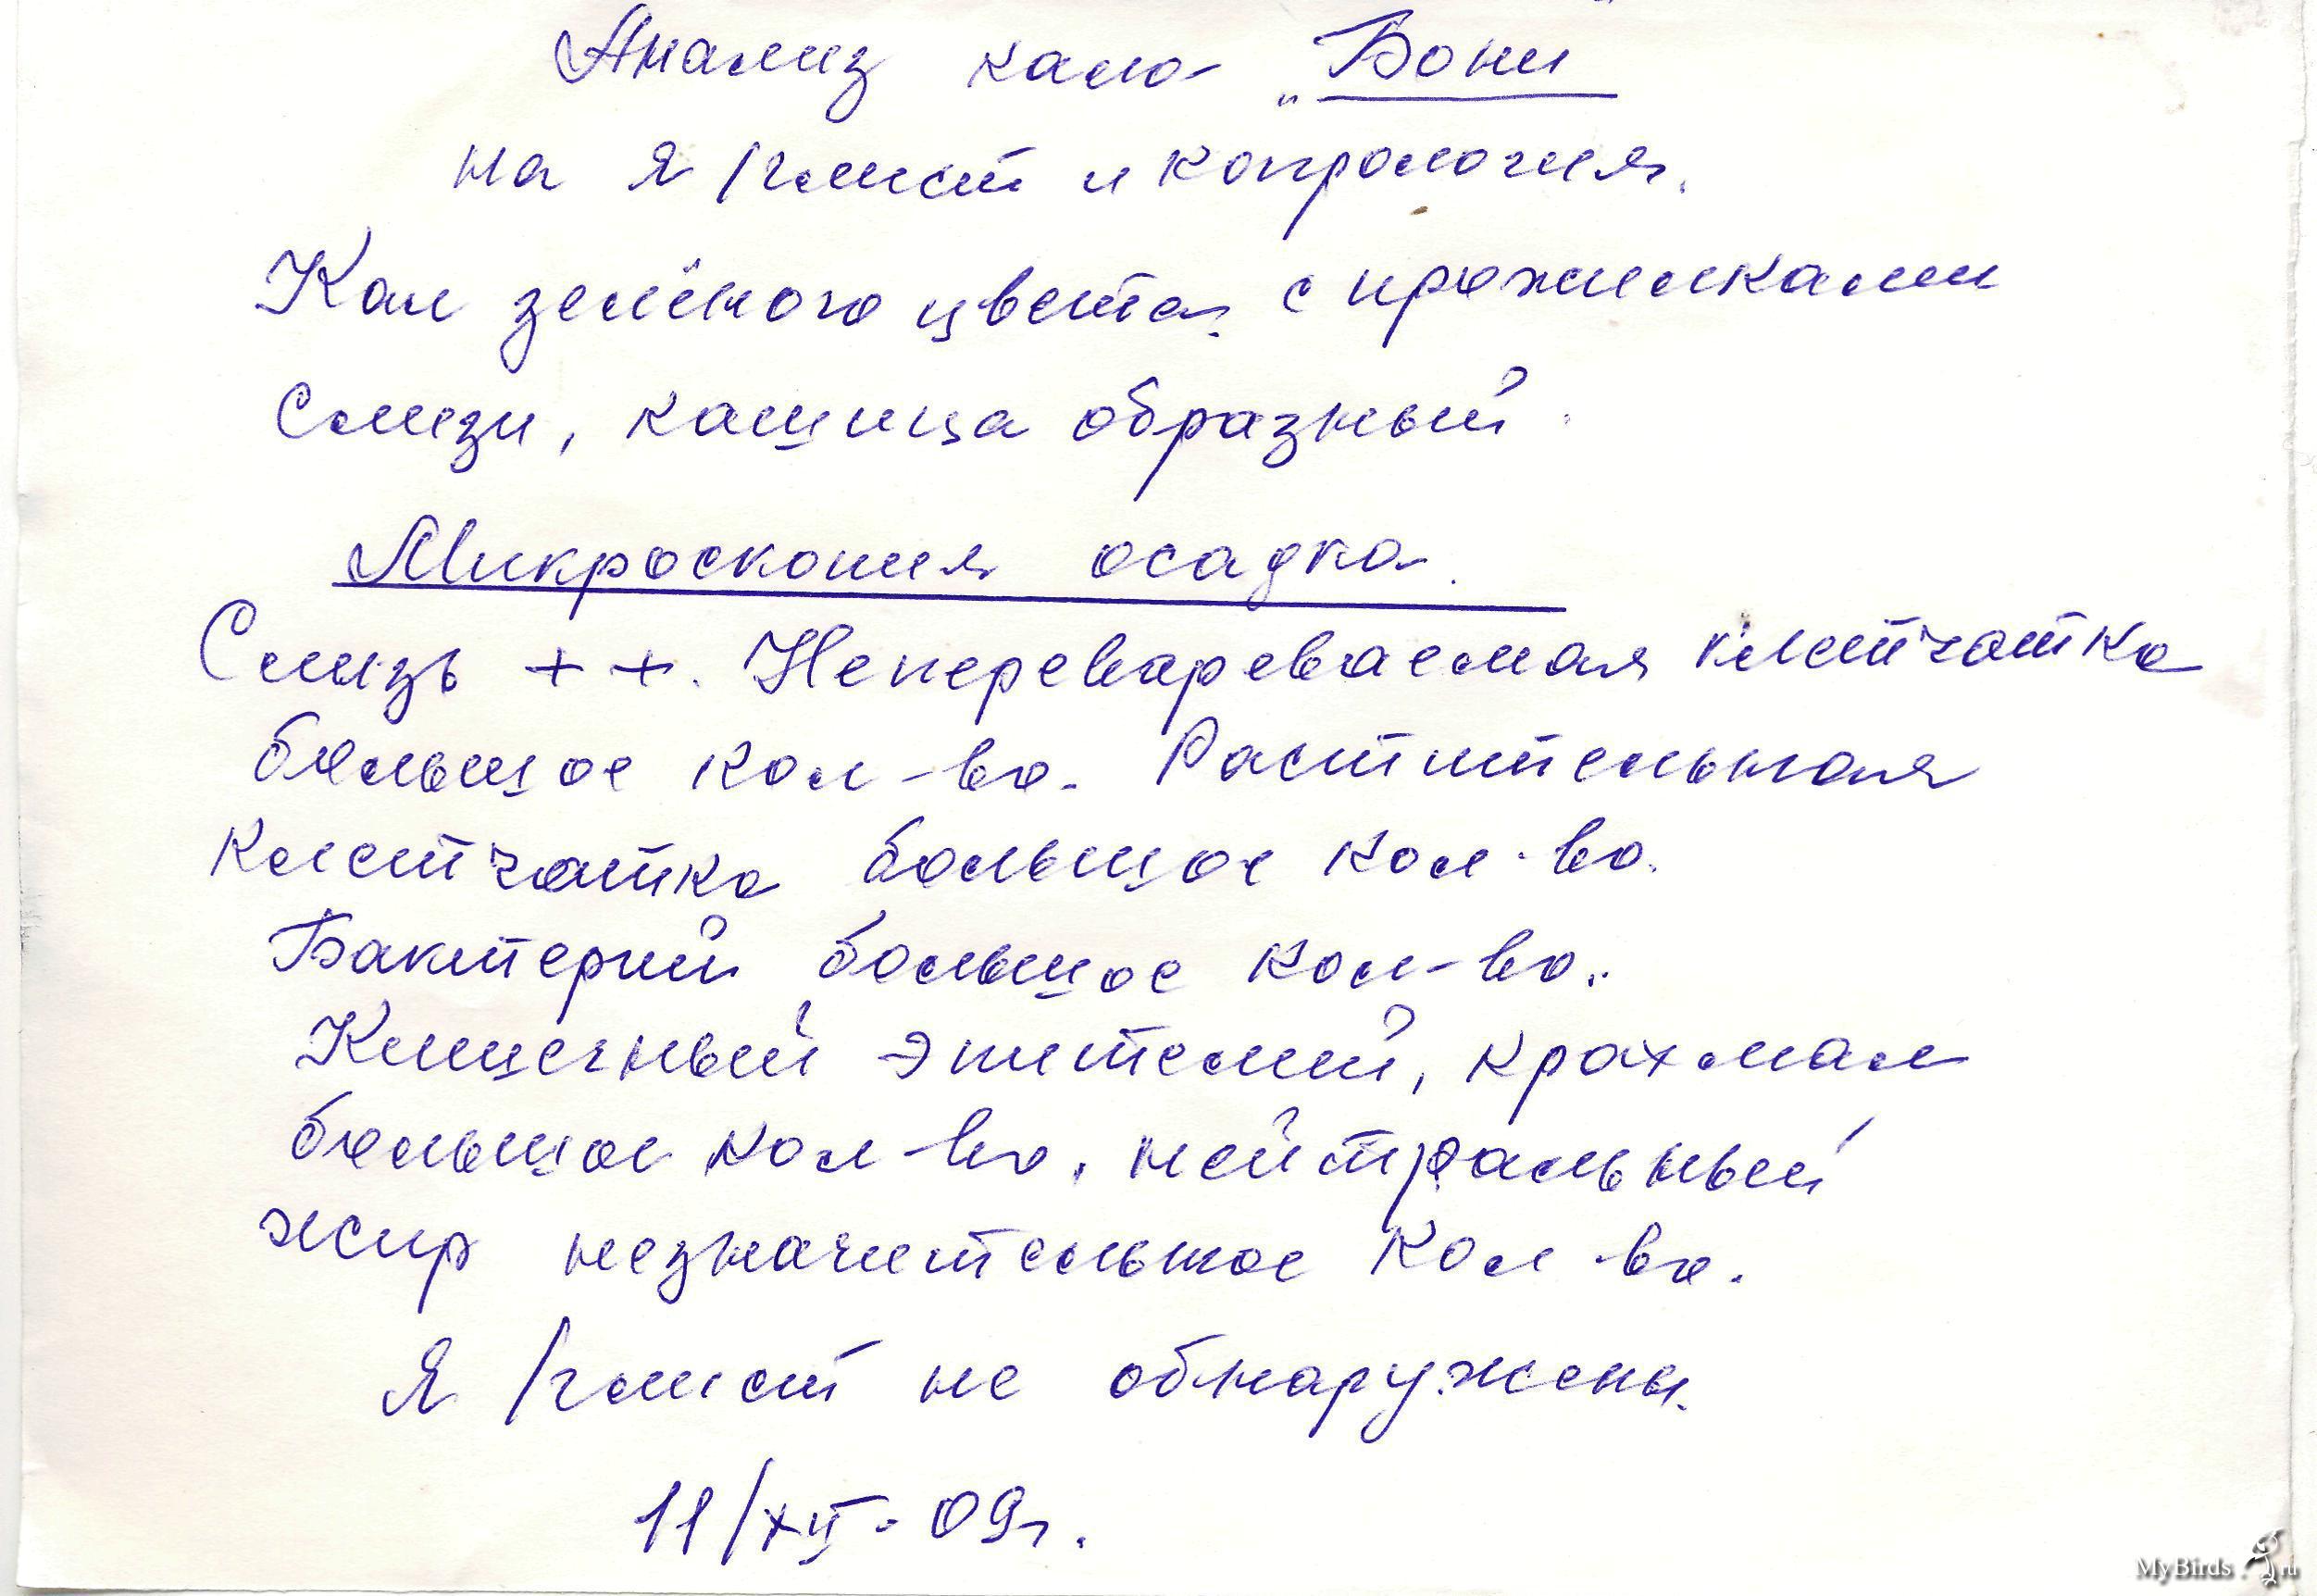 Анализ кала „Бони
на я/глист и копрология.
Кал зелёного цвета с прожилками
слизи, кашица образный.
Микроскопия осадка.
Слизь ++. Неперевареваемая клетчатка
большое кол-во. Растительная
клетчатка большое кол-во.
Бактерий большое кол-во.
Кишечный эпителий, крахмал
большое кол-во, нейтральный
жир незначительное кол-во.
Я/глист не обнаружены.
11/XII-09г.
MyBirds.ru